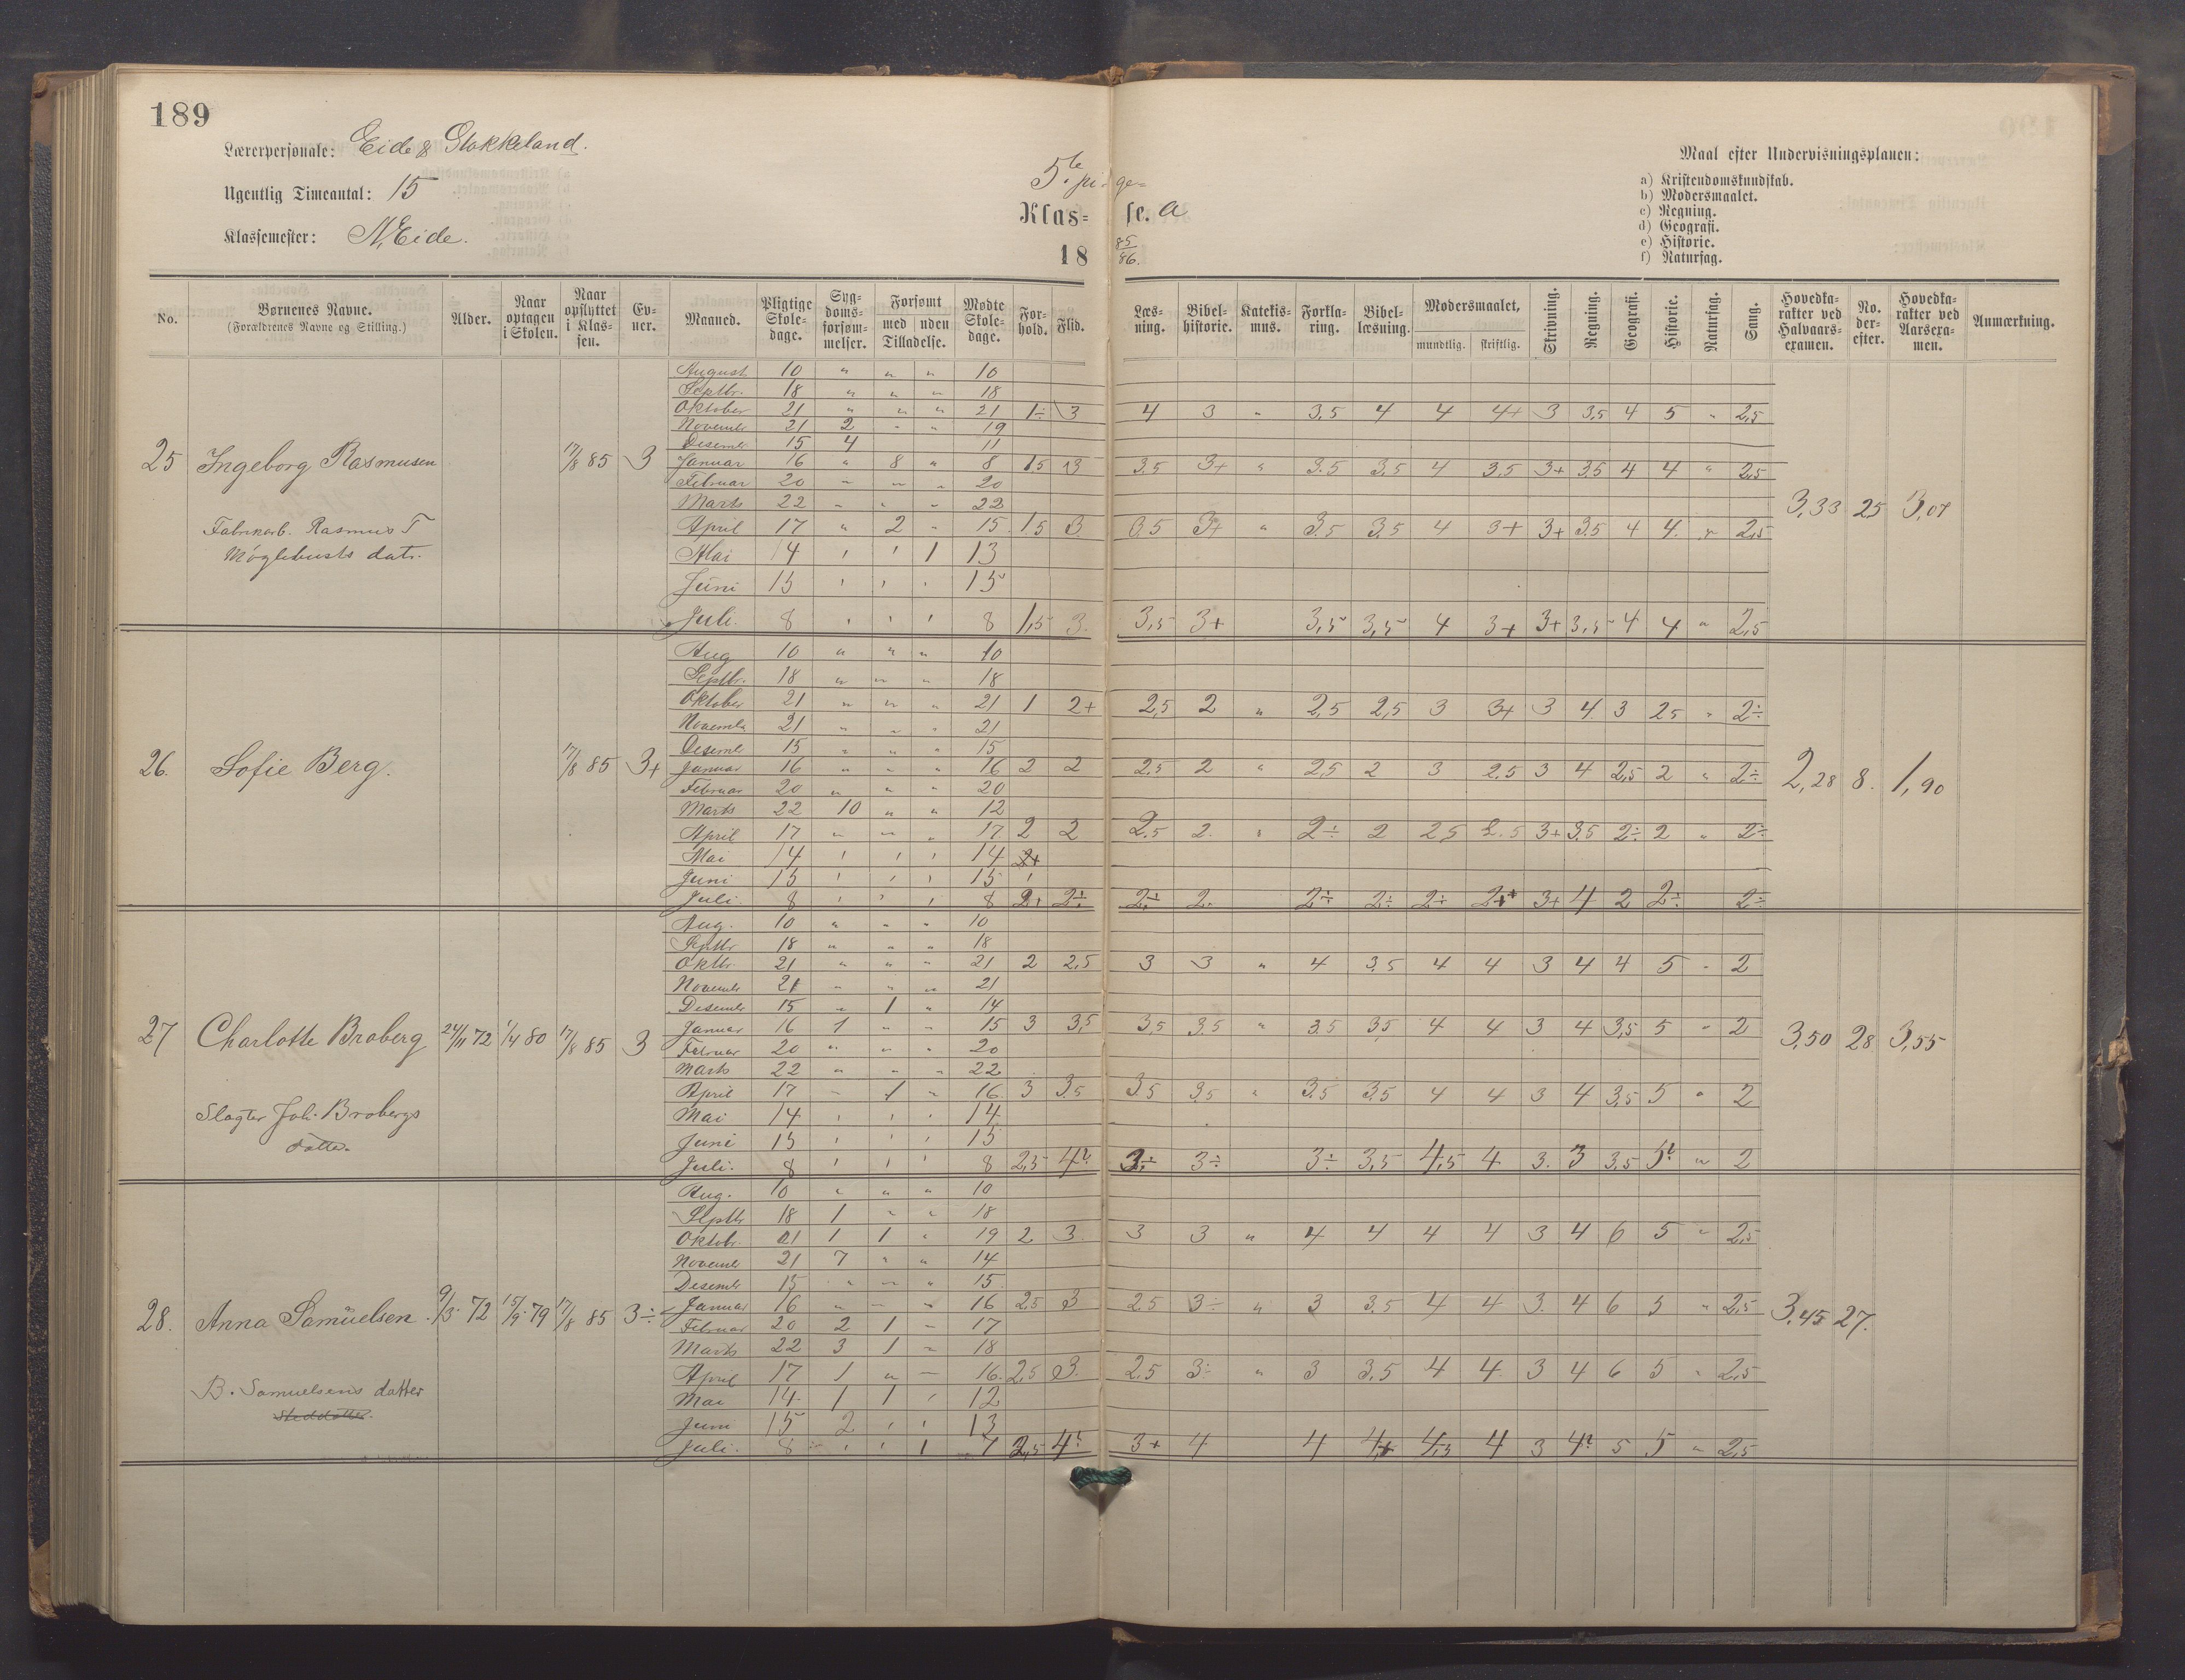 189
Lærerpersonale: Eide & Stokkeland.
Ugentlig Timeantal: 15
Klassemester: N. Eide.
5te pi- ge-
Klas- se. a
18 85/86.
Maal efter Undervisningsplanen:
a) Kristendomskundskab.
b) Modersmaalet.
c) Regning.
d) Geografi.
e) Historie.
f) Naturfag.
No. | Børnenes Navne. (Forældrenes Navne og Stilling.) | Alder. | Naar optagen i Skolen. | Naar opflyttet i Klas- sen. | Ev- ner. | Maaned. | Pligtige Skole- dage. | Syg- doms- forsøm- melser. | Forsømt med uden Tilladelse. | Mødte Skole- dage. | For- hold. | Flid. | Læs- ning. | Bibel- historie. | Katekis- mus. | Forkla- ring. | Bibel- læsning. | Modersmaalet, mundtlig. skriftlig. | Skrivning. | Regning. | Geografi. | Historie. | Naturfag. | Sang. | Hovedka- rakter ved Halvaars- examen. | No. der- efter. | Hovedka- rakter ved Aarsexa- men. | Anmærkning.
25 Ingeborg Rasmusen 17/8 85 3
Fabrikarb. Rasmus T
Møglebusts datr.
August 10 " " " 10
Septbr. 18 " " " 18
Oktober 21 " " " 21 1÷ 3 4 3 " 3,5 4 4 4+ 3 3,5 4 5 " 2,5
Novembr 21 2 " " 19
Desembr 15 4 11
Januar 16 " 8 " 8 1,5 3 3,5 3+ " 3.5 3,5 4 3,5 3+ 3,5 4 4 " 2,5
Februar 20 " " " 20
Marts 22 " " " 22
April 17 " 2 " 15 1,5 3 3,5 3+ " 3,5 3,5 4 3+ 3+ 3,5 4 4 " 2,5
Mai 14 " " 1 13
Juni 15 " " " 15
Juli. 8 " " " 8 1,5 3. 3,5 3+ 3,5 3,5 4 3+ 3+ 3,5 4 4 " 2,5
3,33 25 3,07
26. Sofie Berg. 17/8 85 3+
Aug 10 " " " 10
Septbr. 18 " " " 18
Oktober 21 " " " 21 1 2+ 2,5 2 " 2,5 2,5 3 3+ 3 4 3 2,5 " 2÷
Novembr 21 " " " 21
Desembr 15 " " " 15
Januar 16 " " " 16 2 2 2,5 2 " 2,5 2 3 2,5 3 4 2,5 2 " 2÷
Februar 20 " " " 20
Marts 22 10 " " 12
April 17 " " " 17 2 2 2,5 2. " 2÷ 2 2,5 2.5 3+ 3,5 2÷ 2 " 2÷
Mai 14 " " " 14
Juni 15 " " " 15
Juli. 8 " " " 8 2+ 2÷ 2÷ 2. 2÷ 2÷ 2÷ 2+ 3+ 4 2 2÷ 2÷
2,28 8. 1,90
27 Charlotte Broberg 24/11 72 1/4 80 17/8 85 3
Slagter Joh. Brobergs
datter
Aug. 10 " " " 10
Septbr 18 " " " 18
Oktbr. 21 " " " 21 2 2,5 3 3 " 4 3,5 4 4 3 4 4 5 " 2
Novembr 21 " " " 21
Desembr 15 " 1 " 14
Januar 16 1 " " 15 3 3,5 3,5 3,5 " 3,5 3,5 4 4 3 4 3,5 5 " 2
Februar 20 " " " 20
Marts 22 " " " 22
April 17 " 1 " 16. 3 3,5 3,5 3,5 " 3,5 3,5 4 4 3 4 3,5 5 " 2
Mai 14 " " " 14
Juni 15 " " " 15
Juli. 8 " " " 8 2,5 4? 3÷ 3÷ 3÷ 3,5 4,5 4 3. 3 3,5 5? " 2
3,50 28 3,55
28. Anna Samuelsen. 9/3 72 15/9 79 17/8 85 3÷
B. Samuelsens datter
Steddatter.
Aug. 10 " " " 10
Septbr 18 1 " " 18
Oktobr. 21 1 1 " 19 2 3. 3 3 " 4 4 4 4 3 4 6 5 " 2,5
Novembr 21 7 " " 14
Desembr 15 " " " 15
Januar 16 " " " 16 2,5 3 2,5 3÷ " 3 3,5 4 4 3. 4 6 5 " 2,5
Februar 20 2 1 " 17
Marts 22 3 1 " 18
April 17 1 " " 16. 2,5 3. 2,5 3÷ " 3 3,5 4 4 3 4 6 5 " 2,5
Mai 14 1 1 " 12
Juni 15 2 " " 13
Juli. 8 " " 1 7 2,5 4? 3+ 4 4 4+ 4,5 4 3 4? 5 5 " 2,5
3,45 27.